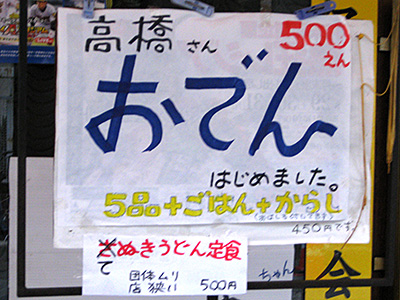 高橋さん 500えん
おでん
はじめました。
5品+ごはん+からし
450円です。
さぬきうどん定食
て
団体ムリ
店狭い 500円
ちゃん
会